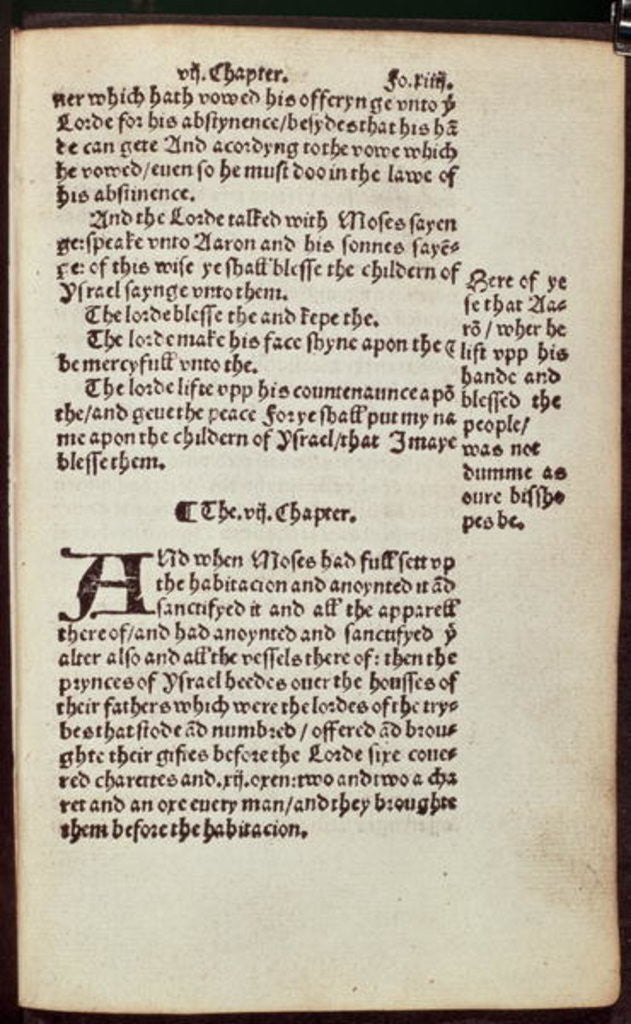 vij. Chapter. Fo. xiiij.
ner which hath vowed his offerynge vnto ẏ
Lorde for his abstynence/besydes that his hā
de can gete And acordyng to the vowe which
he vowed/euen so he must doo in the lawe of
his abstinence.
And the Lorde talked with Moses sayen
ge: speake vnto Aaron and his sonnes sayē-
ge: of this wise ye shall blesse the childern of
Ysrael saynge vnto them.
The lorde blesse the and kepe the.
The lorde make his face shyne apon the &
be mercyfull vnto the.
The lorde lifte vpp his countenaunce apō
the/and geue the peace For ye shall put my na
me apon the childern of Ysrael/that I maye
blesse them.
Here of ye
se that Aa-
rō/wher he
lift vpp his
hande and
blessed the
people/
was not
dumme as
oure bissho
pes be.
¶ The .vij. Chapter.
ANd when Moses had full sett vp
the habitacion and anoynted it ād
sanctifyed it and all the apparell
there of/and had anoynted and sanctifyed ẏ
alter also and all the vessels there of: then the
prynces of Ysrael heedes ouer the housses of
their fathers which were the lordes of the try-
bes that stode ād numbred/offered ād brou-
ghte their giftes before the Lorde sixe coue-
red charettes and .xij. oxen: two and two a cha
ret and an oxe euery man/and they broughte
them before the habitacion.